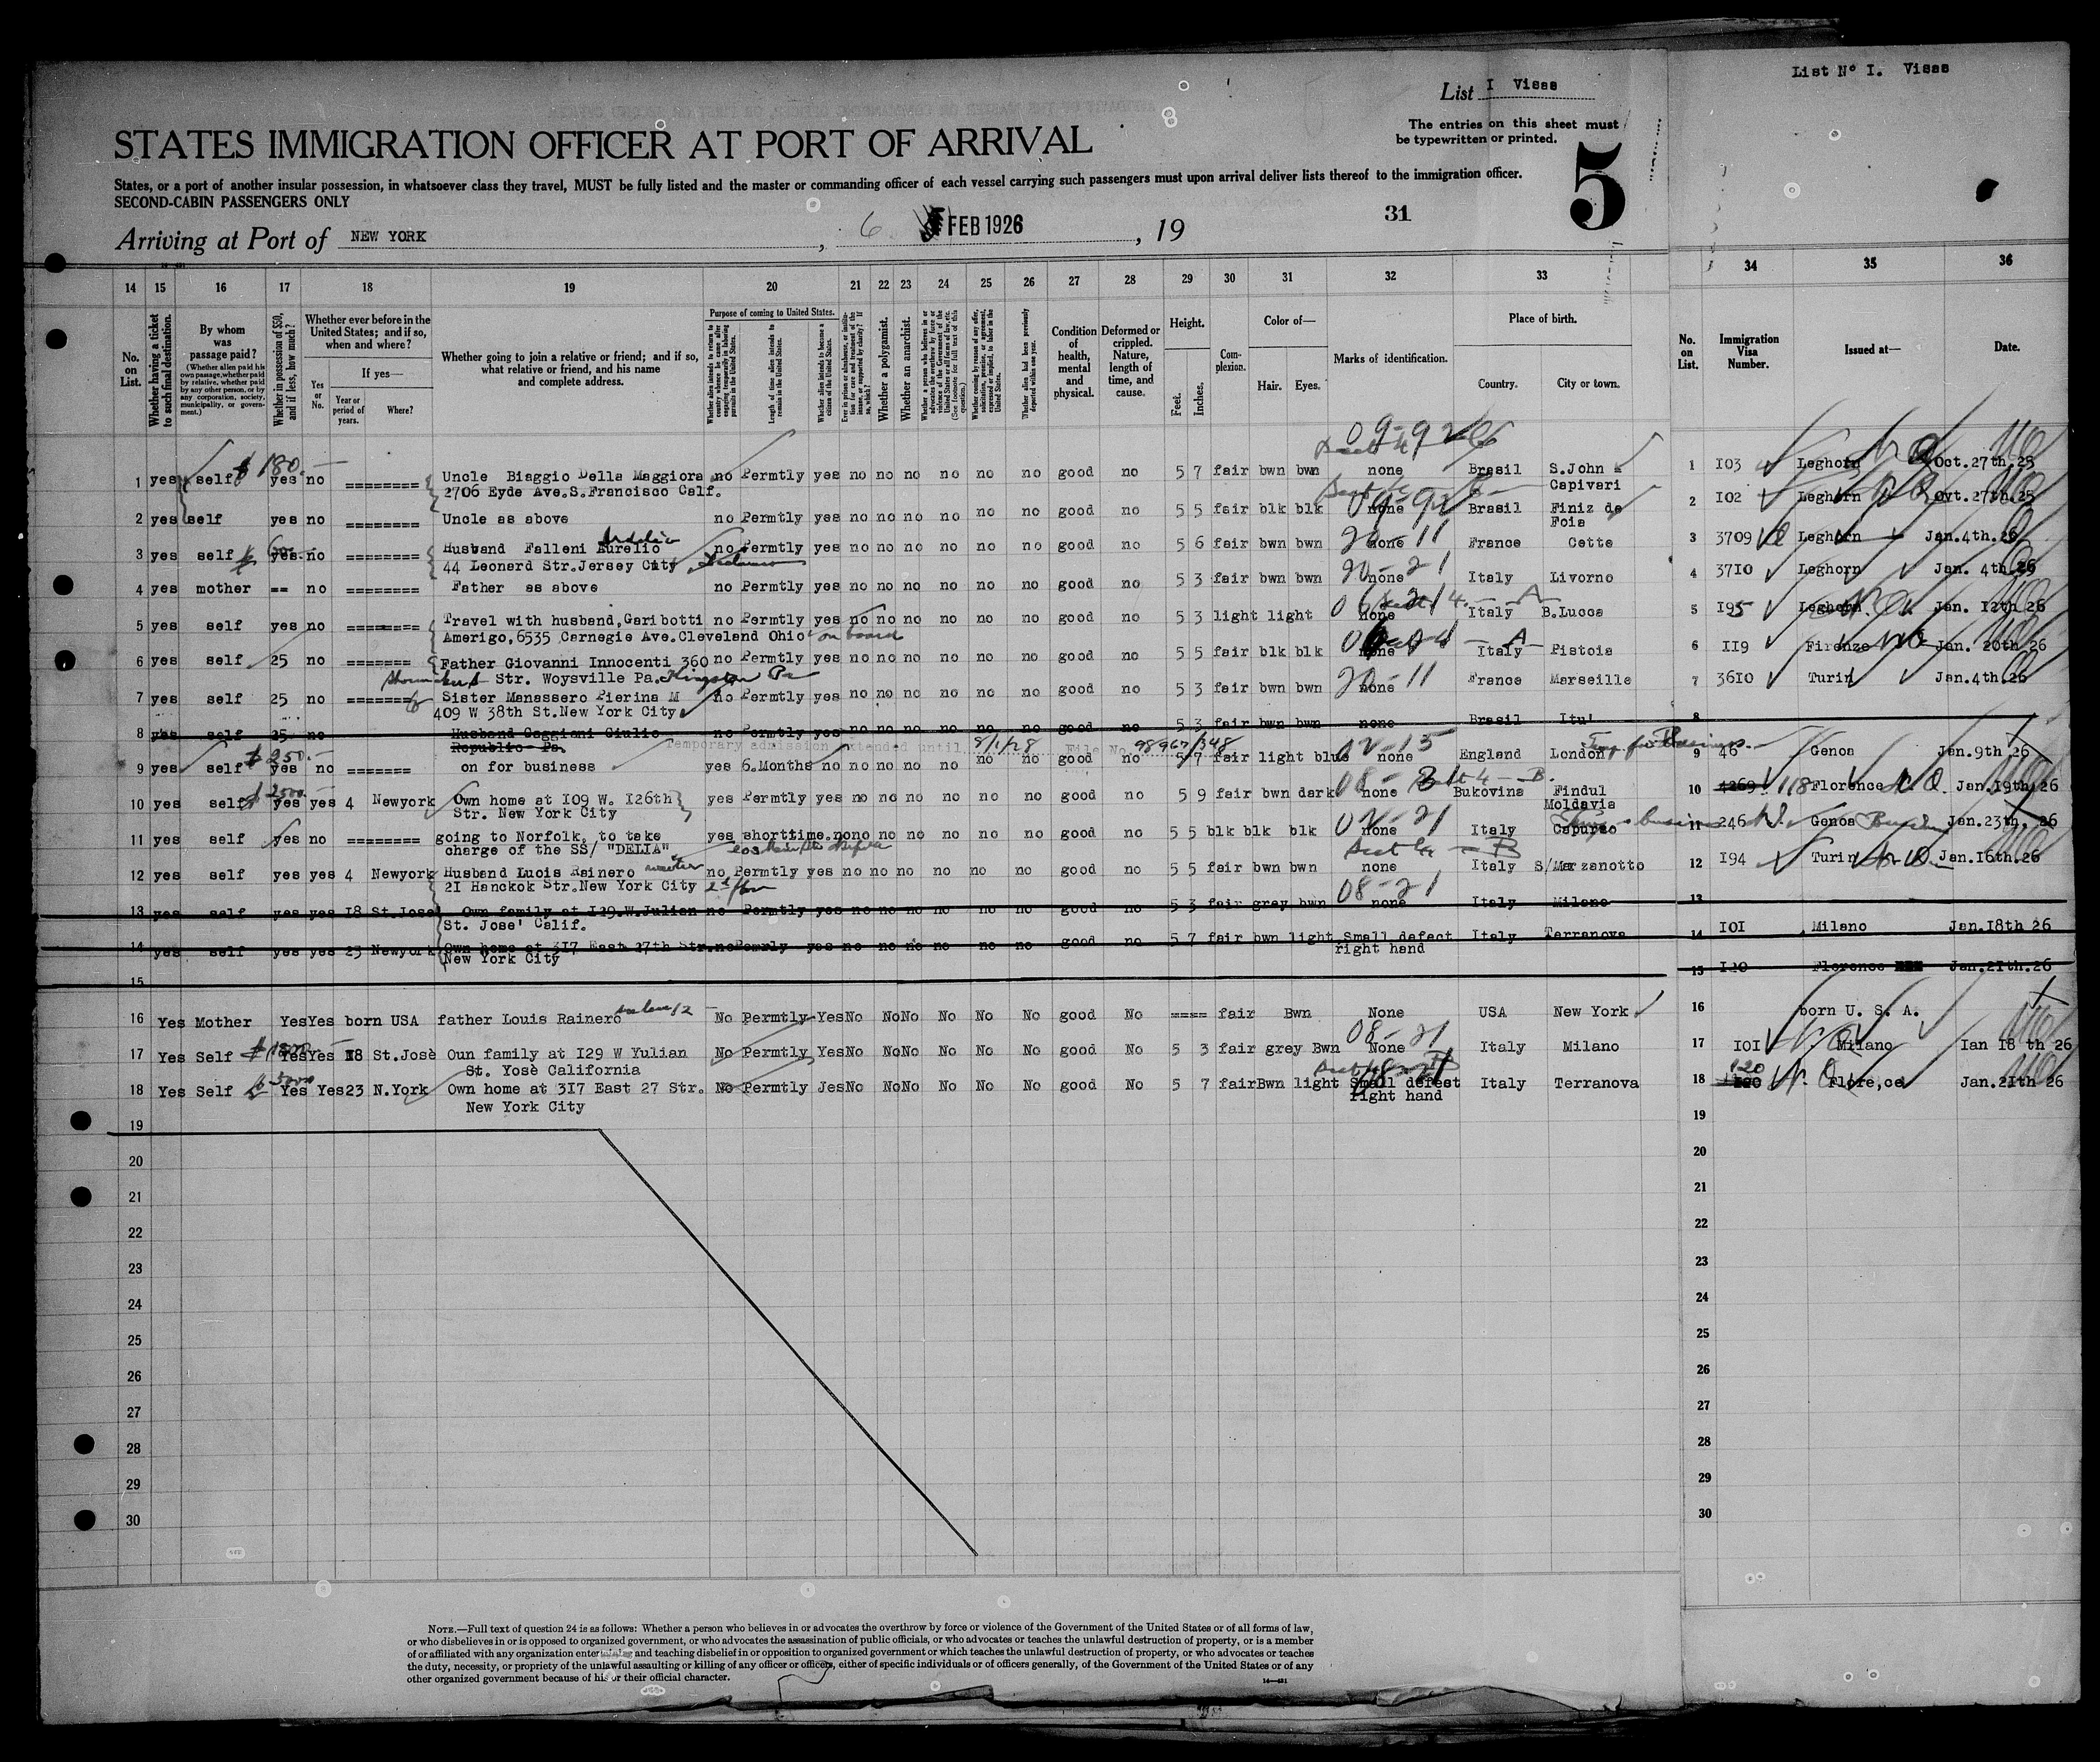 List No I. Visas
List I Visas
The entries on this sheet must
be typewritten or printed.
5
STATES IMMIGRATION OFFICER AT PORT OF ARRIVAL
States, or a port of another insular possession, in whatsoever class they travel, MUST be fully listed and the master or commanding officer of each vessel carrying such passengers must upon arrival deliver lists thereof to the immigration officer.
SECOND-CABIN PASSENGERS ONLY
31
Arriving at Port of NEW YORK, 6 FEB 1926, 19
14 15 16 17 18 19 20 21 22 23 24 25 26 27 28 29 30 31 32 33 34 35 36
No. on List.
Whether having a ticket to such final destination.
By whom was passage paid?
(Whether alien paid his own passage, whether paid by relative, whether paid by any other person, or by any corporation, society, municipality, or government.)
Whether in possession of $50, and if less, how much?
Whether ever before in the United States; and if so, when and where?
Yes or No.
If yes—
Year or period of years.
Where?
Whether going to join a relative or friend; and if so, what relative or friend, and his name and complete address.
Purpose of coming to United States.
Length of time alien intends to remain in the United States.
Whether alien intends to become a citizen of the United States.
Whether a polygamist.
Whether an anarchist.
Condition of health, mental and physical.
Deformed or crippled. Nature, length of time, and cause.
Height.
Feet.
Inches.
Complexion.
Color of—
Hair.
Eyes.
Marks of identification.
Place of birth.
Country.
City or town.
No. on List.
Immigration Visa Number.
Issued at—
Date.
1 yes self $180.— yes no ======== Uncle Biaggio Della Maggiora no Permtly yes no no no no no no good no 5 7 fair bwn bwn none Brasil S.John 1 I03 Leghorn Oct.27th,25
2706 Eyde Ave.S.Francisco Calf. Capivari
2 yes self yes no ======== Uncle as above no Permtly yes no no no no no no good no 5 5 fair blk blk none Brasil Finiz de 2 I02 Leghorn Ovt.27th.25
Fois
3 yes self yes no ======== Husband Falleni Aurelio no Permtly yes no no no no no no good no 5 6 fair bwn bwn none 20-11 France Cette 3 3709 Leghorn Jan.4th.26
44 Leonard Str.Jersey City
4 yes mother == no ======== Father as above no Permtly yes no no no no no no good no 5 3 fair bwn bwn none 20-21 Italy Livorno 4 37I0 Leghorn Jan. 4th.26
5 yes self yes no ======== Travel with husband,Garibotti no Permtly yes no no no no no no good no 5 3 light light none Italy B.Lucca 5 I95 Leghorn Jan. I2th.26
Amerigo,6535 Carnegie Ave.Cleveland Ohio on board
6 yes self 25 no ======= Father Giovanni Innocenti 360 no Permtly yes no no no no no no good no 5 5 fair blk blk none Italy Pistoia 6 II9 Firenze Jan. 20th 26
Str. Woysville Pa. Kingston Pa
7 yes self 25 no ======= Sister Manassero Pierina M no Permtly yes no no no no no no good no 5 3 fair bwn bwn none 20-11 France Marseille 7 36I0 Turin Jan.4th.26
409 W 38th St.New York City
8 yes self 25 no Husband Caggiani Giulio no Permtly yes no no no no no no good no 5 3 fair bwn bwn none Brasil Itu' 8
Republic Pa.
Temporary admission extended until 5/1/28 File No. 98967/348
9 yes self $250.— yes no ======= on for business yes 6.Months no no no no no no no good no 5 7 fair light blue none England London 9 46 Genoa Jan.9th.26
10 yes self $2500.— yes yes 4 Newyork Own home at I09 W. I26th yes Permtly yes no no no no no no good no 5 9 fair bwn dark none Bukovina Findul 10 4269 118 Florence Jan.I9th.26
Str. New York City Moldavia
11 yes self yes no going to Norfolk, to take yes shorttime.no no no no no no no good no 5 5 blk blk blk none Italy Capurso 11 246 Genoa Jan.23th, 26
charge of the SS/ "DELIA"
12 yes self yes yes 4 Newyork Husband Lucis Rainero no Permtly yes no no no no no no good no 5 5 fair bwn bwn none Italy S/Marzanotto 12 I94 Turin Jan.I6th.26
2I Hanckok Str.New York City
08-21
13 yes self yes yes I8 St.Jose' Own family at I29.W.Julian no Permtly yes no no no no no no good no 5 3 fair grey bwn none Italy Milano 13
St. Jose' Calif.
14 yes self yes yes 23 Newyork Own home at 3I7 East 27th Str.no Permly yes no no no no no no good no 5 7 fair bwn light Small defect Italy Terranova 14 I0I Milano Jan.I8th 26
New York City right hand
15 15 I20 Florence Jan.2Ith.26
16 Yes Mother Yes Yes born USA father Louis Rainero No Permtly Yes No No No No No No good No ==== fair Bwn None USA New York 16 born U. S. A.
08-21
17 Yes Self Yes Yes I8 St.Josè Oun family at I29 W Yulian No Permtly Yes No No No No No No good No 5 3 fair grey Bwn None Italy Milano 17 I0I Milano Ian I8 th 26
St. Yosè California
18 Yes Self $5000 Yes Yes 23 N.York Own home at 3I7 East 27 Str. No Permtly Jes No No No No No No good No 5 7 fair Bwn light Small defest Italy Terranova 18 120 Flore,ce Jan.2Ith 26
New York City right hand
19 19
20 20
21 21
22 22
23 23
24 24
25 25
26 26
27 27
28 28
29 29
30 30
NOTE.—Full text of question 24 is as follows: Whether a person who believes in or advocates the overthrow by force or violence of the Government of the United States or of all forms of law,
or who disbelieves in or is opposed to organized government, or who advocates the assassination of public officials, or who advocates or teaches the unlawful destruction of property, or is a member
of or affiliated with any organization entertaining and teaching disbelief in or opposition to organized government or which teaches the unlawful destruction of property, or who advocates or teaches
the duty, necessity, or propriety of the unlawful assaulting or killing of any officer or officers, either of specific individuals or of officers generally, of the Government of the United States or of any
other organized government because of his or their official character.